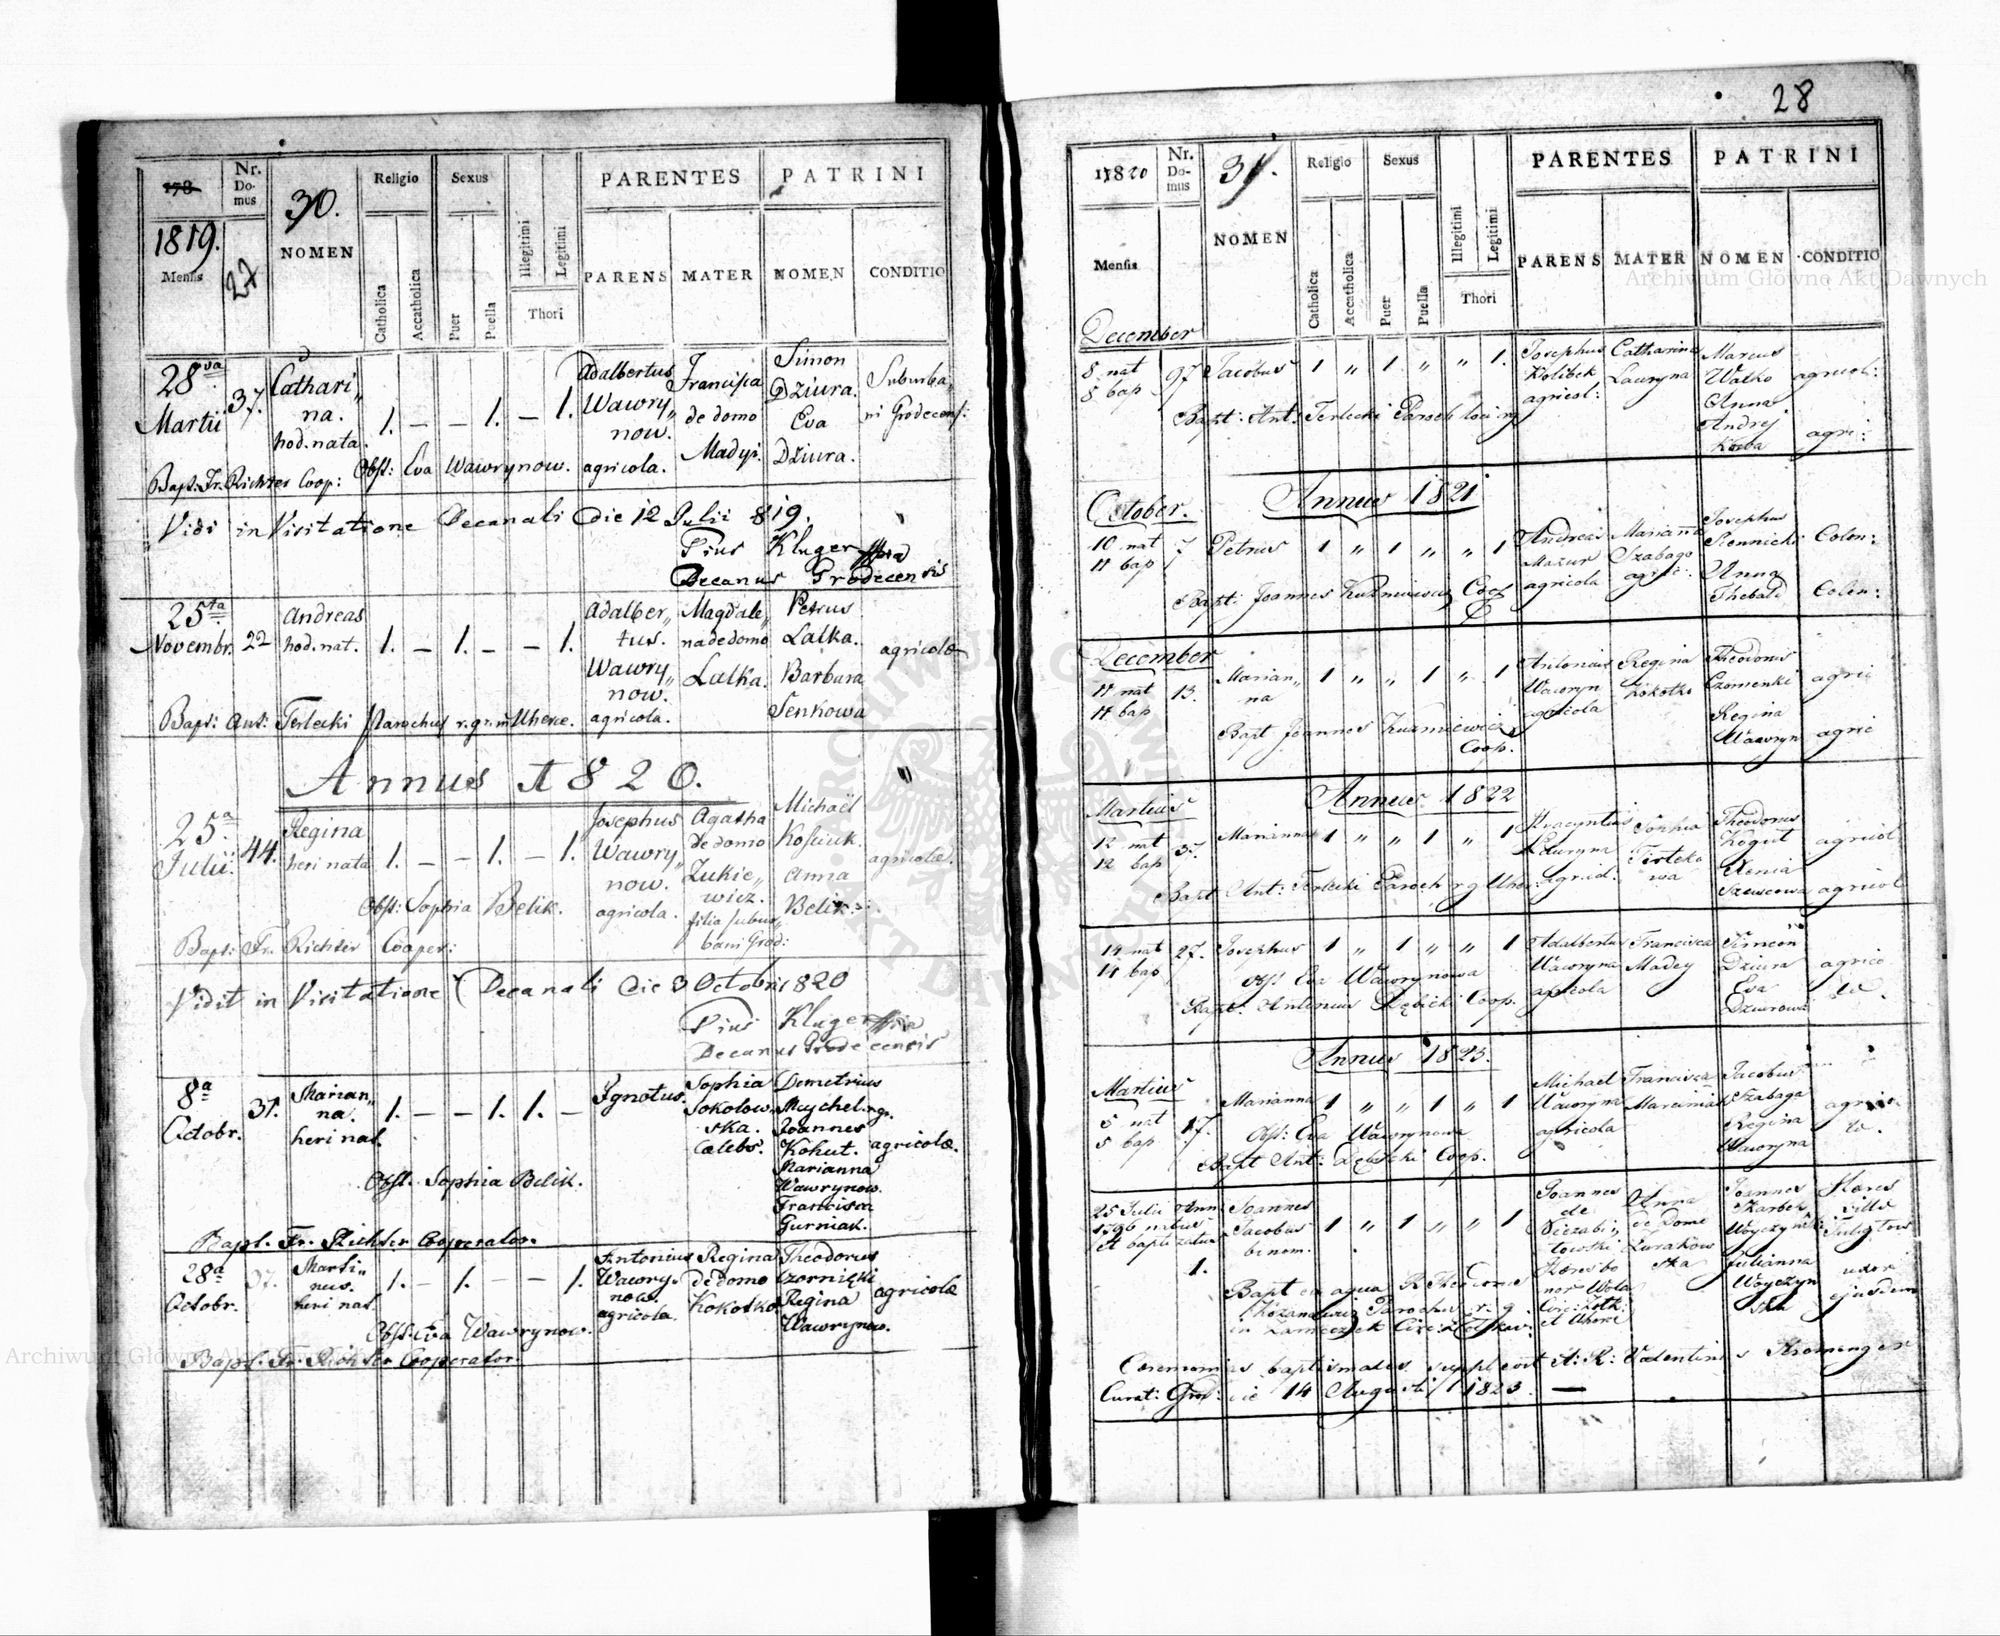 28
178
Nr. Domus
30.
Religio
Sexus
PARENTES
PATRINI
1819.
27
Mensis
NOMEN
Catholica
Accatholica
Puer
Puella
Illegitimi
Legitimi
Thori
PARENS
MATER
NOMEN
CONDITIO
28va Martii
37.
Cathari„
na.
hod. nata.
1. — — 1. — 1.
Adalbertus
Wawry„
now.
agricola.
Francisca
de domo
Madyi.
Simon
Dziura.
Eva
Dziura.
Suburba„
ni Grodecens:
Bapt: Fr. Richter Coop:
Obst: Eva Wawrynow.
Vidi in Visitatione Decanali Die 12 Julii 819.
Pius Kluger
Decanus Grodecensis
25ta
Novembr.
22
Andreas
hod. nat.
1. — 1. — — 1.
Adalber„
tus.
Wawry„
now.
agricola.
Magdale„
na de domo
Lalka.
Petrus
Lalka.
Barbara
Senkowa
agricolae
Bapt: Ant: Terlecki Parochus r. gr. in Uherce.
Annus 1820.
25a
Julii.
44.
Regina
heri nata
1. — — 1. — 1.
Josephus
Wawry„
now.
agricola.
Agatha
de domo
Zukie„
wicz.
filia subur„
bani Grod:
Michaël
Kosciuk.
Anna
Belik.
agricolae.
Obst: Sophia Belik.
Bapt: Fr. Richter Cooper:
Vidit in Visitatione Decanali Die 3 Octobri 1820
Pius Kluger
Decanus Grodecensis
8a
Octobr.
37.
Marian„
na.
heri nat.
1. — — 1. 1. —
Ignotus.
Sophia
Sokolow„
ska.
caelebs.
Demetrius
Mychel.
Joannes
Kohut.
Marianna
Wawrynow.
Francisca
Gurniak.
agricolae.
Obst. Sophia Belik.
Bapt. Fr. Richter Cooperator.
28a
Octobr.
37.
Marti„
nus.
heri nat.
1. — 1. — — 1.
Antonius
Wawry„
now.
agricola.
Regina
de domo
Kokotko
Theodorus
Czornięki
Regina
Wawrynow.
agricolae
Obst. Eva Wawrynow.
Bapt. Fr. Richter Cooperator.
1820
Nr. Domus
31.
Religio
Sexus
PARENTES
PATRINI
Mensis
NOMEN
Catholica
Accatholica
Puer
Puella
Illegitimi
Legitimi
Thori
PARENS
MATER
NOMEN
CONDITIO
December
8 nat
8 bap
97
Jacobus
1 „ 1 „ „ 1.
Josephus
Kolibek
agricol:
Catharina
Lauryna
Marcus
Walko
Anna
Andrej
agricol:
agri:
Bapt: Ant: Terlecki Paroch loci
Annus 1821
October.
10 nat
11 bap
7
Petrus
1 „ 1 „ „ 1
Andreas
Mazur
agricola
Marianna
Szabago
agric:
Josephus
Anna
Thebald
Colon:
Colon:
Bapt: Joannes Kuzmiewicz
December
11 nat
11 bap
13.
Marian„
na
1 „ „ 1 „ 1
Antonius
Wawryn
agricola
Regina
Kokotko
Theodorus
Czornenki
Regina
Wawryn
agric
agric
Bapt Joannes Kuzmiewicz
Coop.
Annus 1822
Martius
12 nat
12 bap
37.
Marianna
1 „ „ 1 „ 1
Hyacyntius
Lauryna
agricol.
Sophia
Theodorus
Kogut
Xenia
Szewcowa
agricol
agricol
Bapt Ant: Terlecki Paroch r g Uher:
14 nat
14 bap
27.
Josephus
1 „ 1 „ „ 1
Adalbertus
Wawryna
agricola
Francisca
Madey
Simeon
Dziura
Eva
Dziurowa
agrico
lae.
Obst Eva Wawrynowa
Bapt. Antonius Dębicki Coop.
Annus 1823.
Martius
5 nat
5 bap
17.
Marianna
1 „ „ 1 „ 1
Michael
Wawryna
agricola
Francisca
Marciniak
Jacobus
Szabaga
Regina
Wawryna
agrico
lae.
Obst: Eva Wawrynowa
Bapt Ant: Dębicki Coop.
25 Julii Ann
1796 natus
et baptizatus
1.
Joannes
Jacobus
binom.
1 „ 1 „ „ 1
Joannes
de
Anna
de Domo
Zurakow
ska
Joannes
Skarbek
Julianna
Woyczyn
ska
Haeres
villae
uxor
ejusdem
Bapt ex aqua R Theodorus
Parochus r. g.
Ceremonias baptismales supplevit A: R: Valentinus Kromenger
Curat: Grod: die 14 Augusti 1823. —
Archiwum Główne Akt Dawnych
Archiwum Główne Akt Dawnych
ARCHIWUM GŁÓWNE AKT DAWNYCH